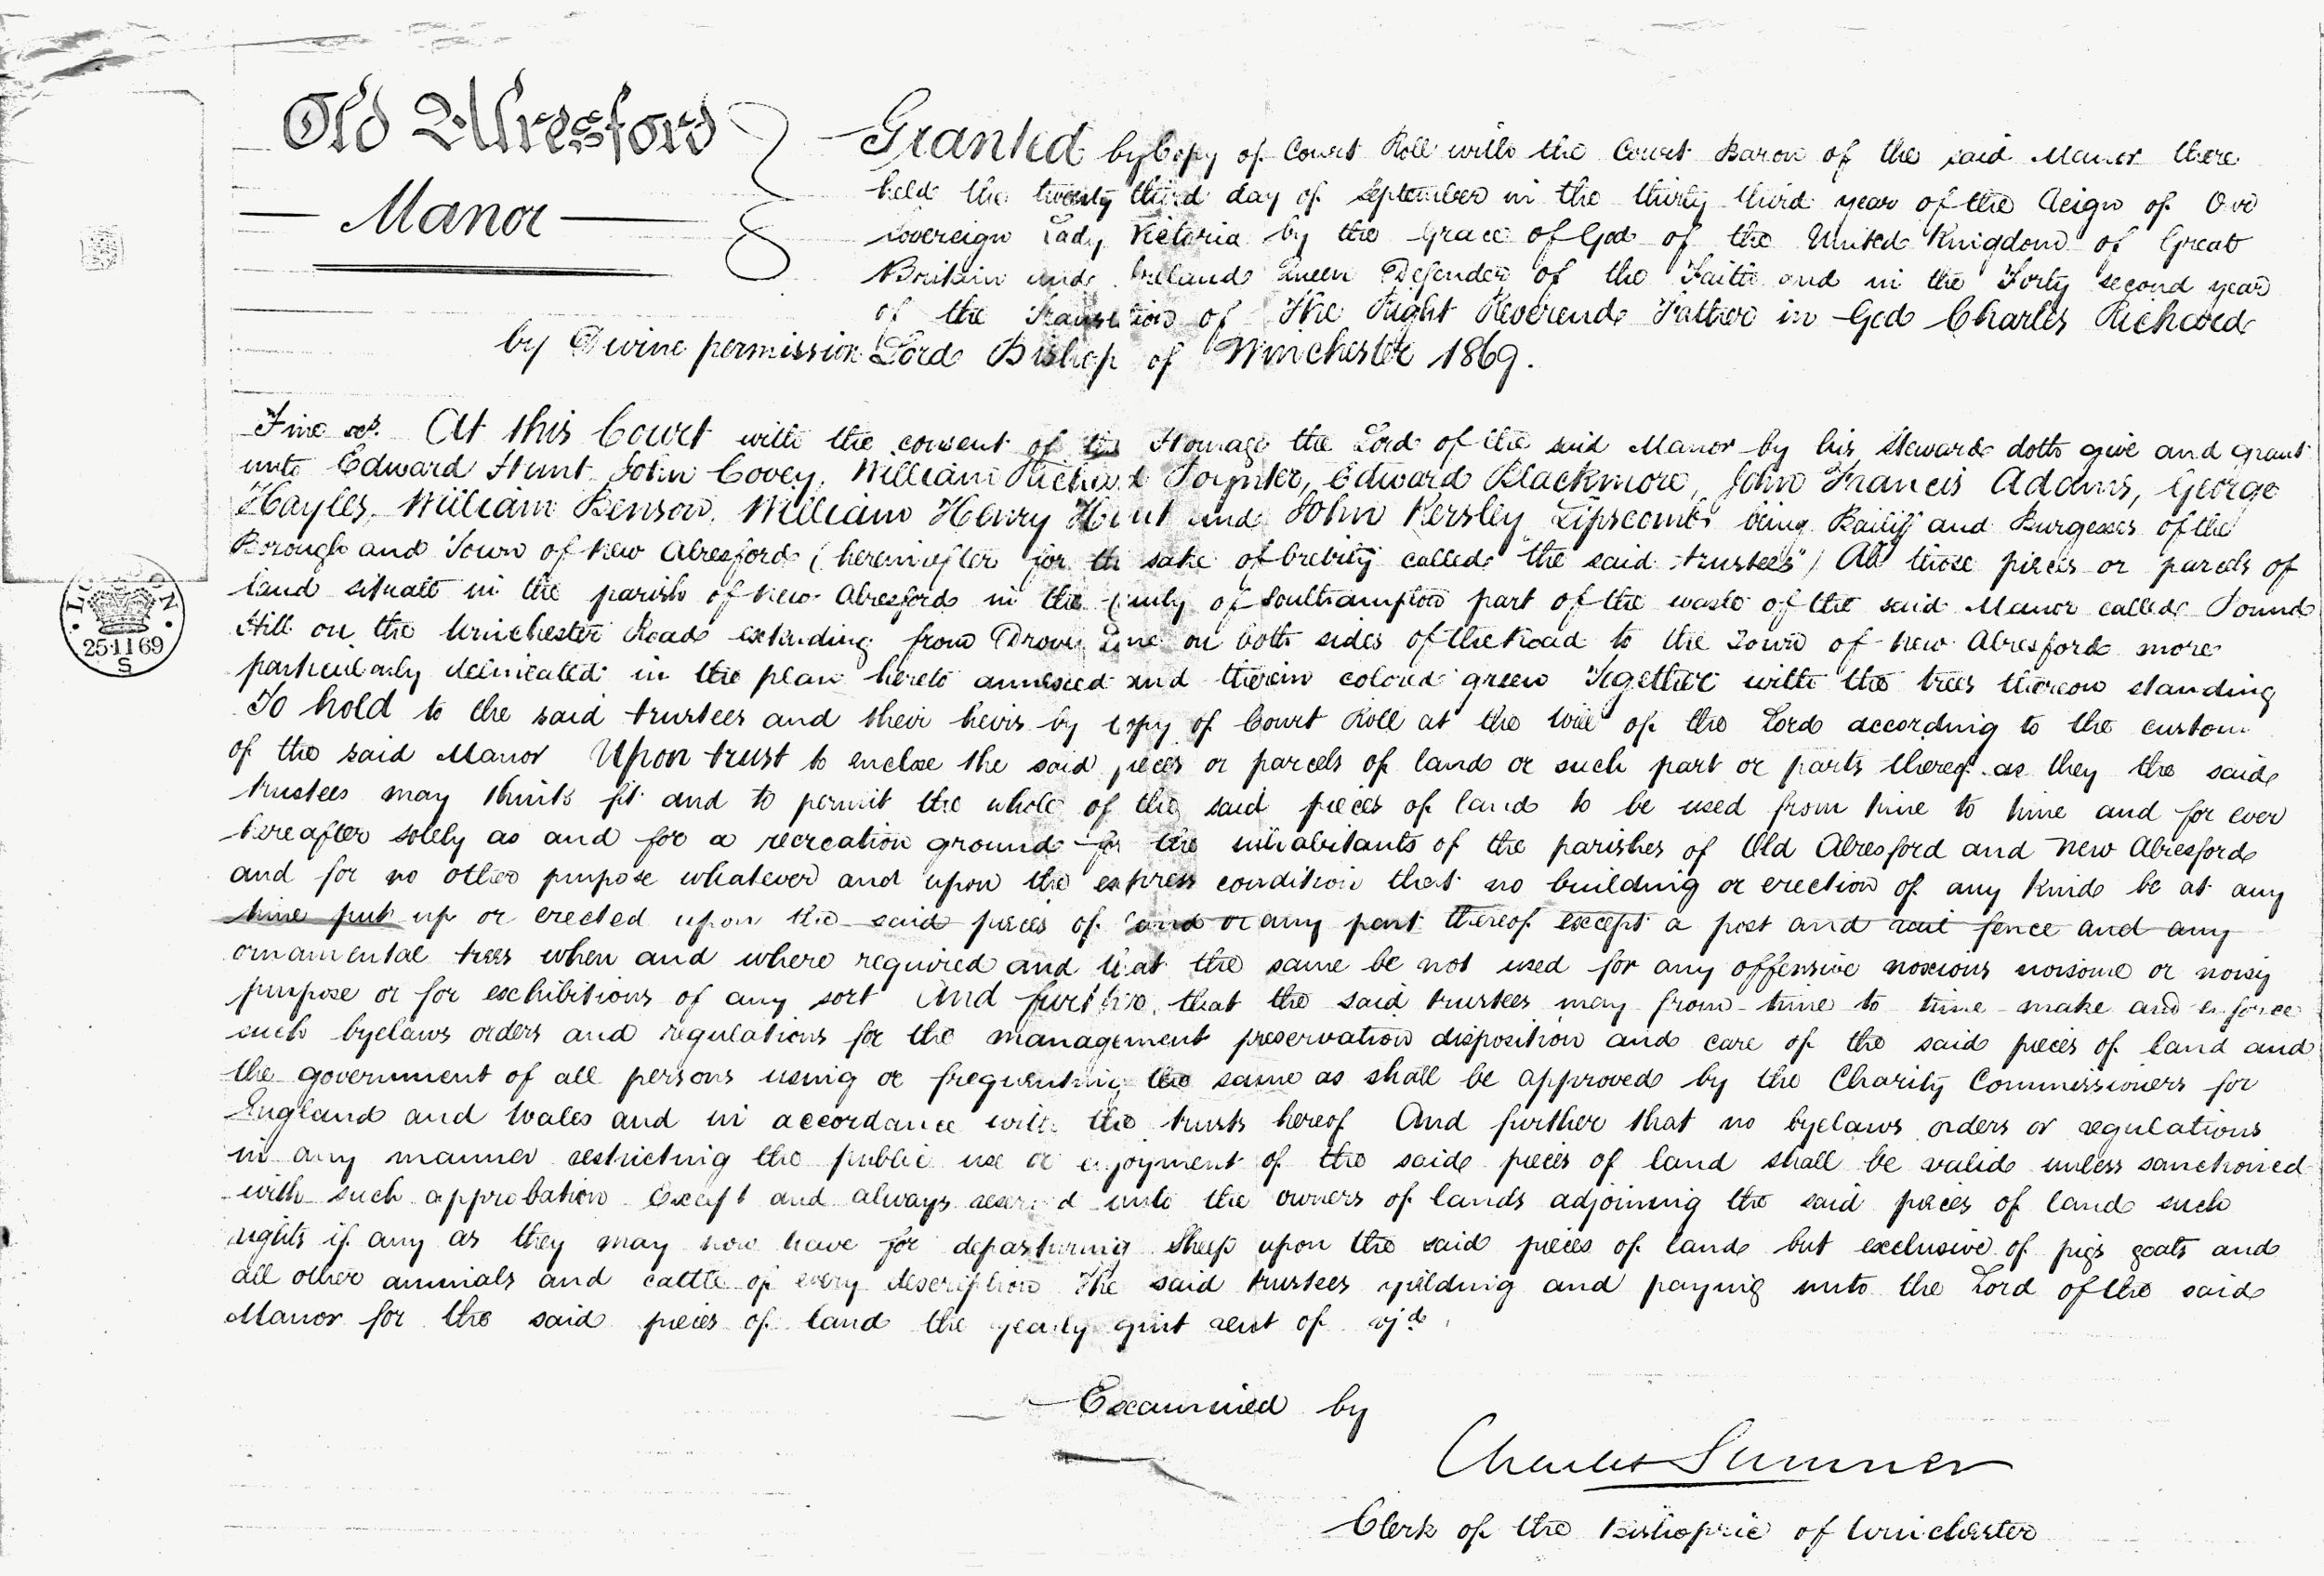 Old Alresford
Manor
Granted by Copy of Court Roll with the Court Baron of the said Manor there
held the twenty third day of September in the thirty third year of the Reign of Our
Sovereign Lady Victoria by the Grace of God of the United Kingdom of Great
Britain and Ireland Queen Defender of the Faith and in the Forty second year
of the Translation of The Right Reverend Father in God Charles Richard
by Divine permission Lord Bishop of Winchester 1869.
Fine At this Court with the consent of the Homage the Lord of the said Manor by his Steward doth give and grant
unto Edward Hunt John Covey, William Richard Poynter, Edward Blackmore, John Francis Adams, George
Hayles, William Benson, William Henry Hunt and John Kersley Lipscomb being Bailiff and Burgesses of the
Borough and Town of New Alresford (hereinafter for the sake of brevity called "the said trustees") All those pieces or parcels of
land situate in the parish of New Alresford in the County of Southampton part of the waste of the said Manor called Pound
Hill on the Winchester Road extending from Drove Lane on both sides of the Road to the Town of New Alresford more
particularly delineated in the plan hereto annexed and therein colored green Together with the trees thereon standing
To hold to the said trustees and their heirs by copy of Court Roll at the Will of the Lord according to the custom
of the said Manor Upon trust to enclose the said pieces or parcels of land or such part or parts thereof as they the said
trustees may think fit and to permit the whole of the said pieces of land to be used from time to time and for ever
hereafter solely as and for a recreation ground for the inhabitants of the parishes of Old Alresford and New Alresford
and for no other purpose whatever and upon the express condition that no building or erection of any kind be at any
time put up or erected upon the said pieces of land or any part thereof except a post and rail fence and any
ornamental trees when and where required and that the same be not used for any offensive noxious noisome or noisy
purpose or for exhibitions of any sort And further that the said trustees may from time to time make and enforce
such byelaws orders and regulations for the management preservation disposition and care of the said pieces of land and
the government of all persons using or frequenting the same as shall be approved by the Charity Commissioners for
England and Wales and in accordance with the trusts hereof And further that no byelaws orders or regulations
in any manner restricting the public use or enjoyment of the said pieces of land shall be valid unless sanctioned
with such approbation Except and always reserved unto the owners of lands adjoining the said pieces of land such
rights if any as they may now have for depasturing Sheep upon the said pieces of land but exclusive of pigs goats and
all other animals and cattle of every description The said trustees yielding and paying unto the Lord of the said
Manor for the said pieces of land the yearly quit rent of vjd.
Examined by
Charles Sumner
Clerk of the Bishopric of Winchester
LONDON
25·11 69
S